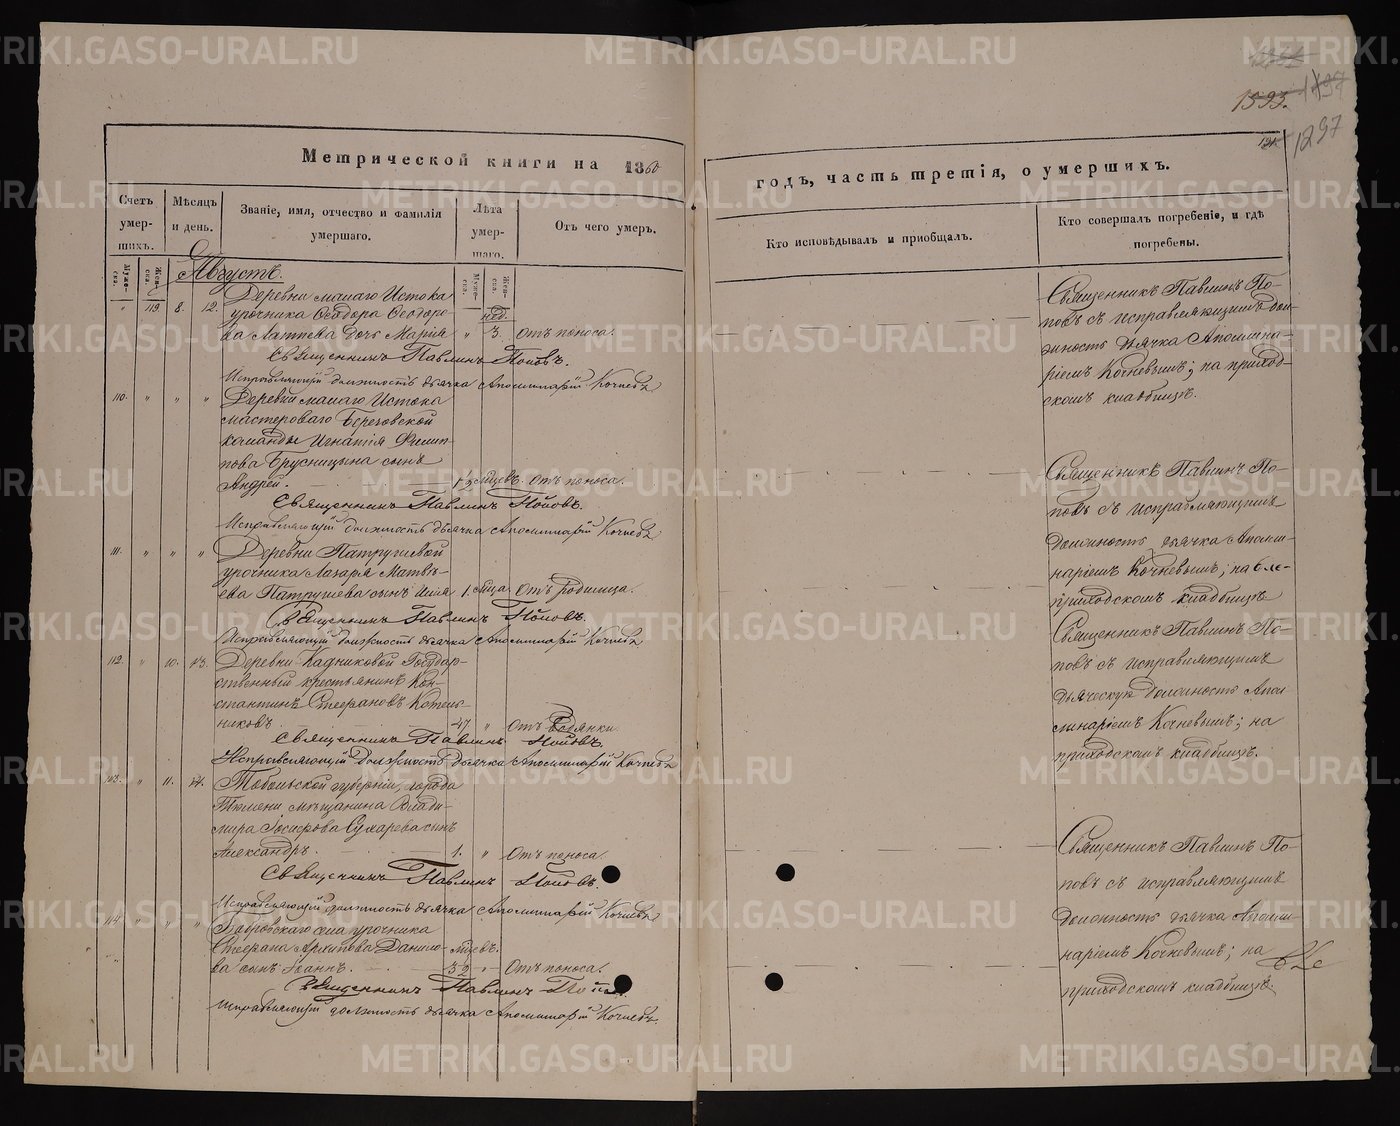 1593.
1297
Метрической книги на 1860
годъ, часть третія, о умершихъ.
Счетъ умер-шихъ.
Мѣсяцъ и день.
Званіе, имя, отчество и фамилія умершаго.
Лѣта умер-шаго.
Отъ чего умеръ.
Кто исповѣдывалъ и пріобщалъ.
Кто совершалъ погребеніе, и гдѣ погребены.
Муже-ска.
Жен-ска.
Муже-ска.
Жен-ска.
Августъ.
Деревни малаго Истока
нед.
" 119. 8. 12. урочника Ѳеодора Ѳеодоро-
ва Лаптева дочь Марія " 3. Отъ поноса.
Священникъ Павлинъ Поповъ.
Исправляющій должность дьячка Аполлинарій Кочневъ
Священникъ Павлинъ По-
повъ съ исправляющимъ дол-
жность дьячка Аполлина-
ріемъ Кочневымъ; на приход-
скомъ кладбищѣ.
110. " " " Деревни малаго Истока
мастероваго Березовской
команды Игнатія Филип-
пова Брусницына сынъ
Андрей. мцевъ. Отъ поноса.
Священникъ Павлинъ Поповъ.
Исправляющій должность дьячка Аполлинарій Кочневъ
Священникъ Павлинъ По-
повъ съ исправляющимъ
должность дьячка Аполли-
наріемъ Кочневымъ; на
приходскомъ кладбищѣ
111. " " " Деревни Патрушевой
урочника Лазаря Матвѣ-
ева Патрушева сынъ Илія 1. мца Отъ родимца.
Священникъ Павлинъ Поповъ.
Исправляющій должность дьячка Аполлинарій Кочневъ
112. " 10. 13. Деревни Кадниковой Государ-
ственный крестьянинъ Кон-
стантинъ Стефановъ Котель-
никовъ. 47 " Отъ водянки
Священникъ Павлинъ Поповъ.
Исправляющій должность дьячка Аполлинарій Кочневъ
Священникъ Павлинъ По-
повъ съ исправляющимъ
дьяческую должность Апол-
линаріемъ Кочневымъ; на
приходскомъ кладбищѣ.
113. " 11. 14. Тобольской губерніи, города
Тюмени мѣщанина Влади-
мира Іосифова Сухарева сынъ
Александръ. 1. " Отъ поноса.
Священникъ Павлинъ Поповъ.
Исправляющій должность дьячка Аполлинарій Кочневъ
Священникъ Павлинъ По-
повъ съ исправляющимъ
должность дьячка Аполли-
наріемъ Кочневымъ; на
приходскомъ кладбищѣ.
114. " " " села урочника
Стефана Архипова Данило- мцевъ.
ва сынъ Іоаннъ. " Отъ поноса.
Священникъ Павлинъ
Исправляющій должность дьячка Аполлинарій Кочневъ.
METRIKI.GASO-URAL.RU